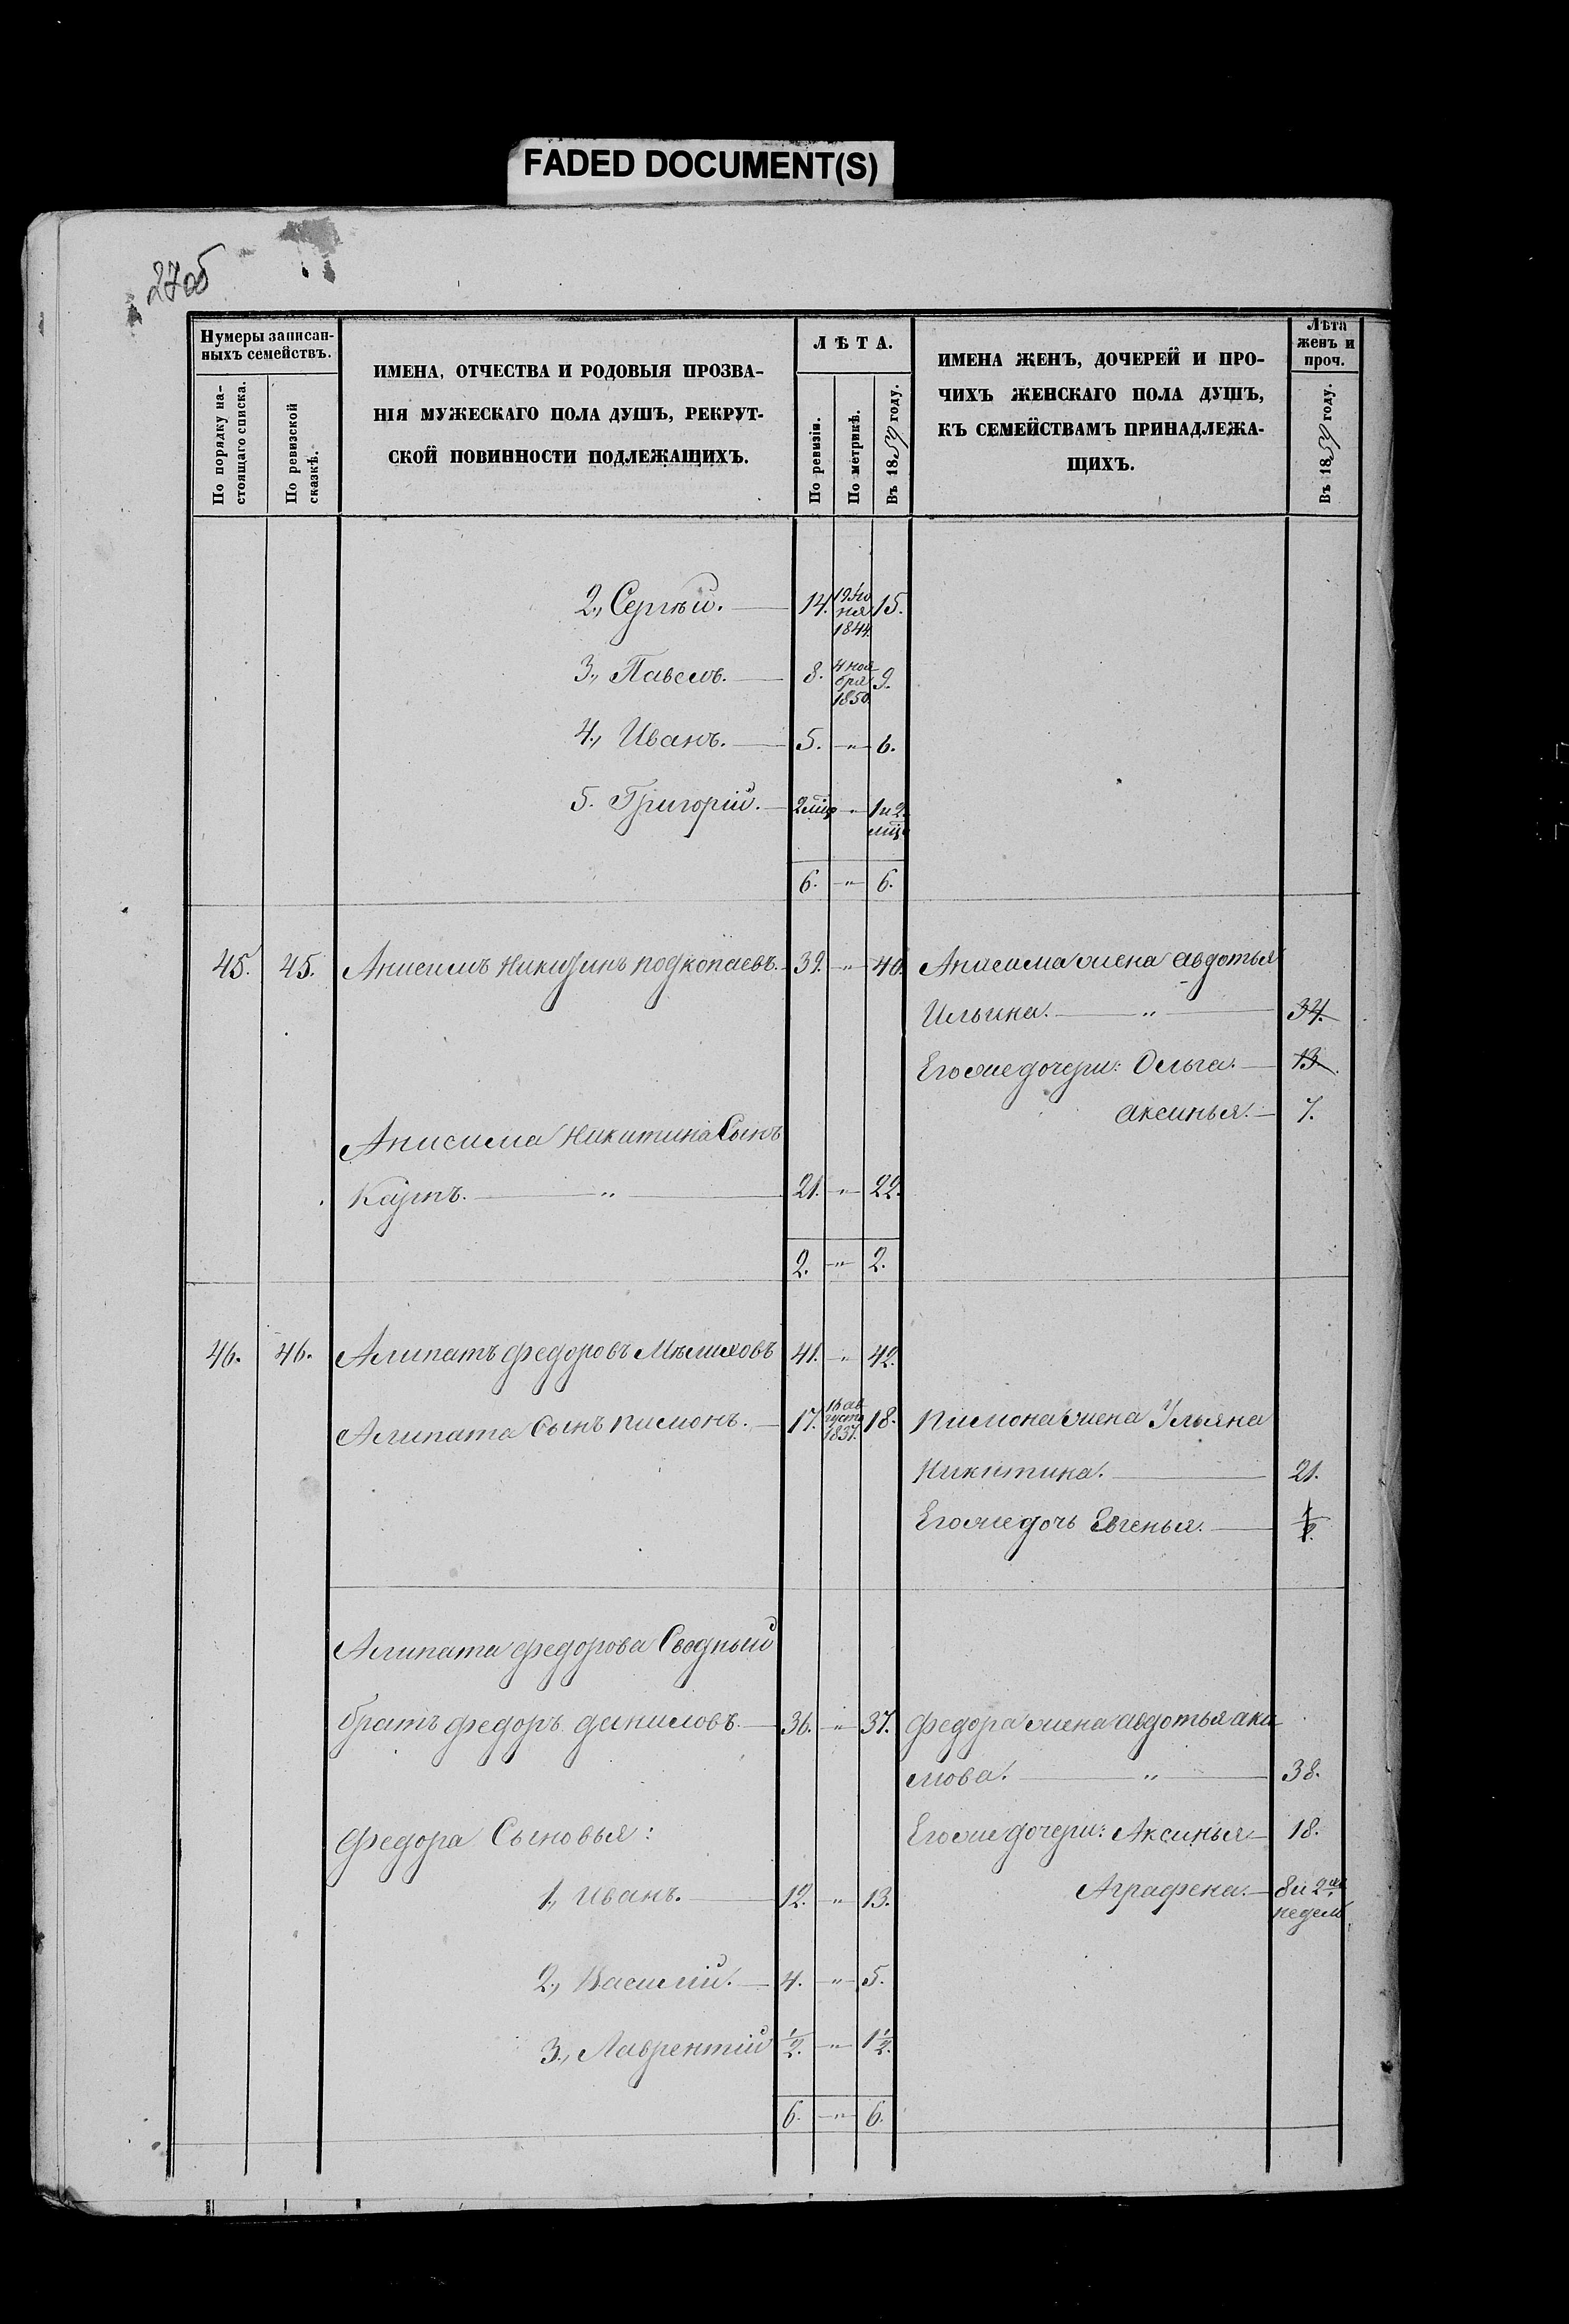 FADED DOCUMENT(S)
27об
Нумеры записан-
ныхъ семействъ.
По порядку на-
стоящаго списка.
По ревизской
сказкѣ.
ИМЕНА, ОТЧЕСТВА И РОДОВЫЯ ПРОЗВА-
НІЯ МУЖЕСКАГО ПОЛА ДУШЪ, РЕКРУТ-
СКОЙ ПОВИННОСТИ ПОДЛЕЖАЩИХЪ.
ЛѢТА.
По ревизіи.
По метрикѣ.
Въ 1859 году.
ИМЕНА ЖЕНЪ, ДОЧЕРЕЙ И ПРО-
ЧИХЪ ЖЕНСКАГО ПОЛА ДУШЪ,
КЪ СЕМЕЙСТВАМЪ ПРИНАДЛЕЖА-
ЩИХЪ.
Лѣта
женъ и
проч.
Въ 1859 году.
2., Сергѣй. 14. 15.
1844.
3., Павелъ. 8. 4 ноя
бря 9.
1850.
4., Иванъ. 5. " 6.
5. Григорій. 2 мѣц " 1 и 2
мѣц.
6. " 6.
45. 45. Анисимъ Никитинъ подкопаевъ. 39. " 40. Анисима жена авдотья
Ильина. " 34.
Его же дочери: Ольга. 13.
аксинья. 7.
Анисима Никитина Сынъ
Карпъ. " 21. " 22.
2. " 2.
46. 46. Алипатъ федоровъ Мѣлиховъ 41. " 42.
Алипата Сынъ пимонъ. 17. 16 ав
густа 18. пимона жена Ульяна
1837.
Никитина. 21.
Его же дочь Евгенья. 1/2.
Алипата федорова Сводный
братъ федоръ даниловъ. 36. " 37. федора жена авдотья аки
мова. " 38.
федора Сыновья: Его же дочери: Аксинья 18.
1., иванъ. 12. " 13. Аграфена. 8 и 2
недел
2., Василій. 4. " 5.
3., Лаврентій 1/2. " 1 1/2.
6. " 6.